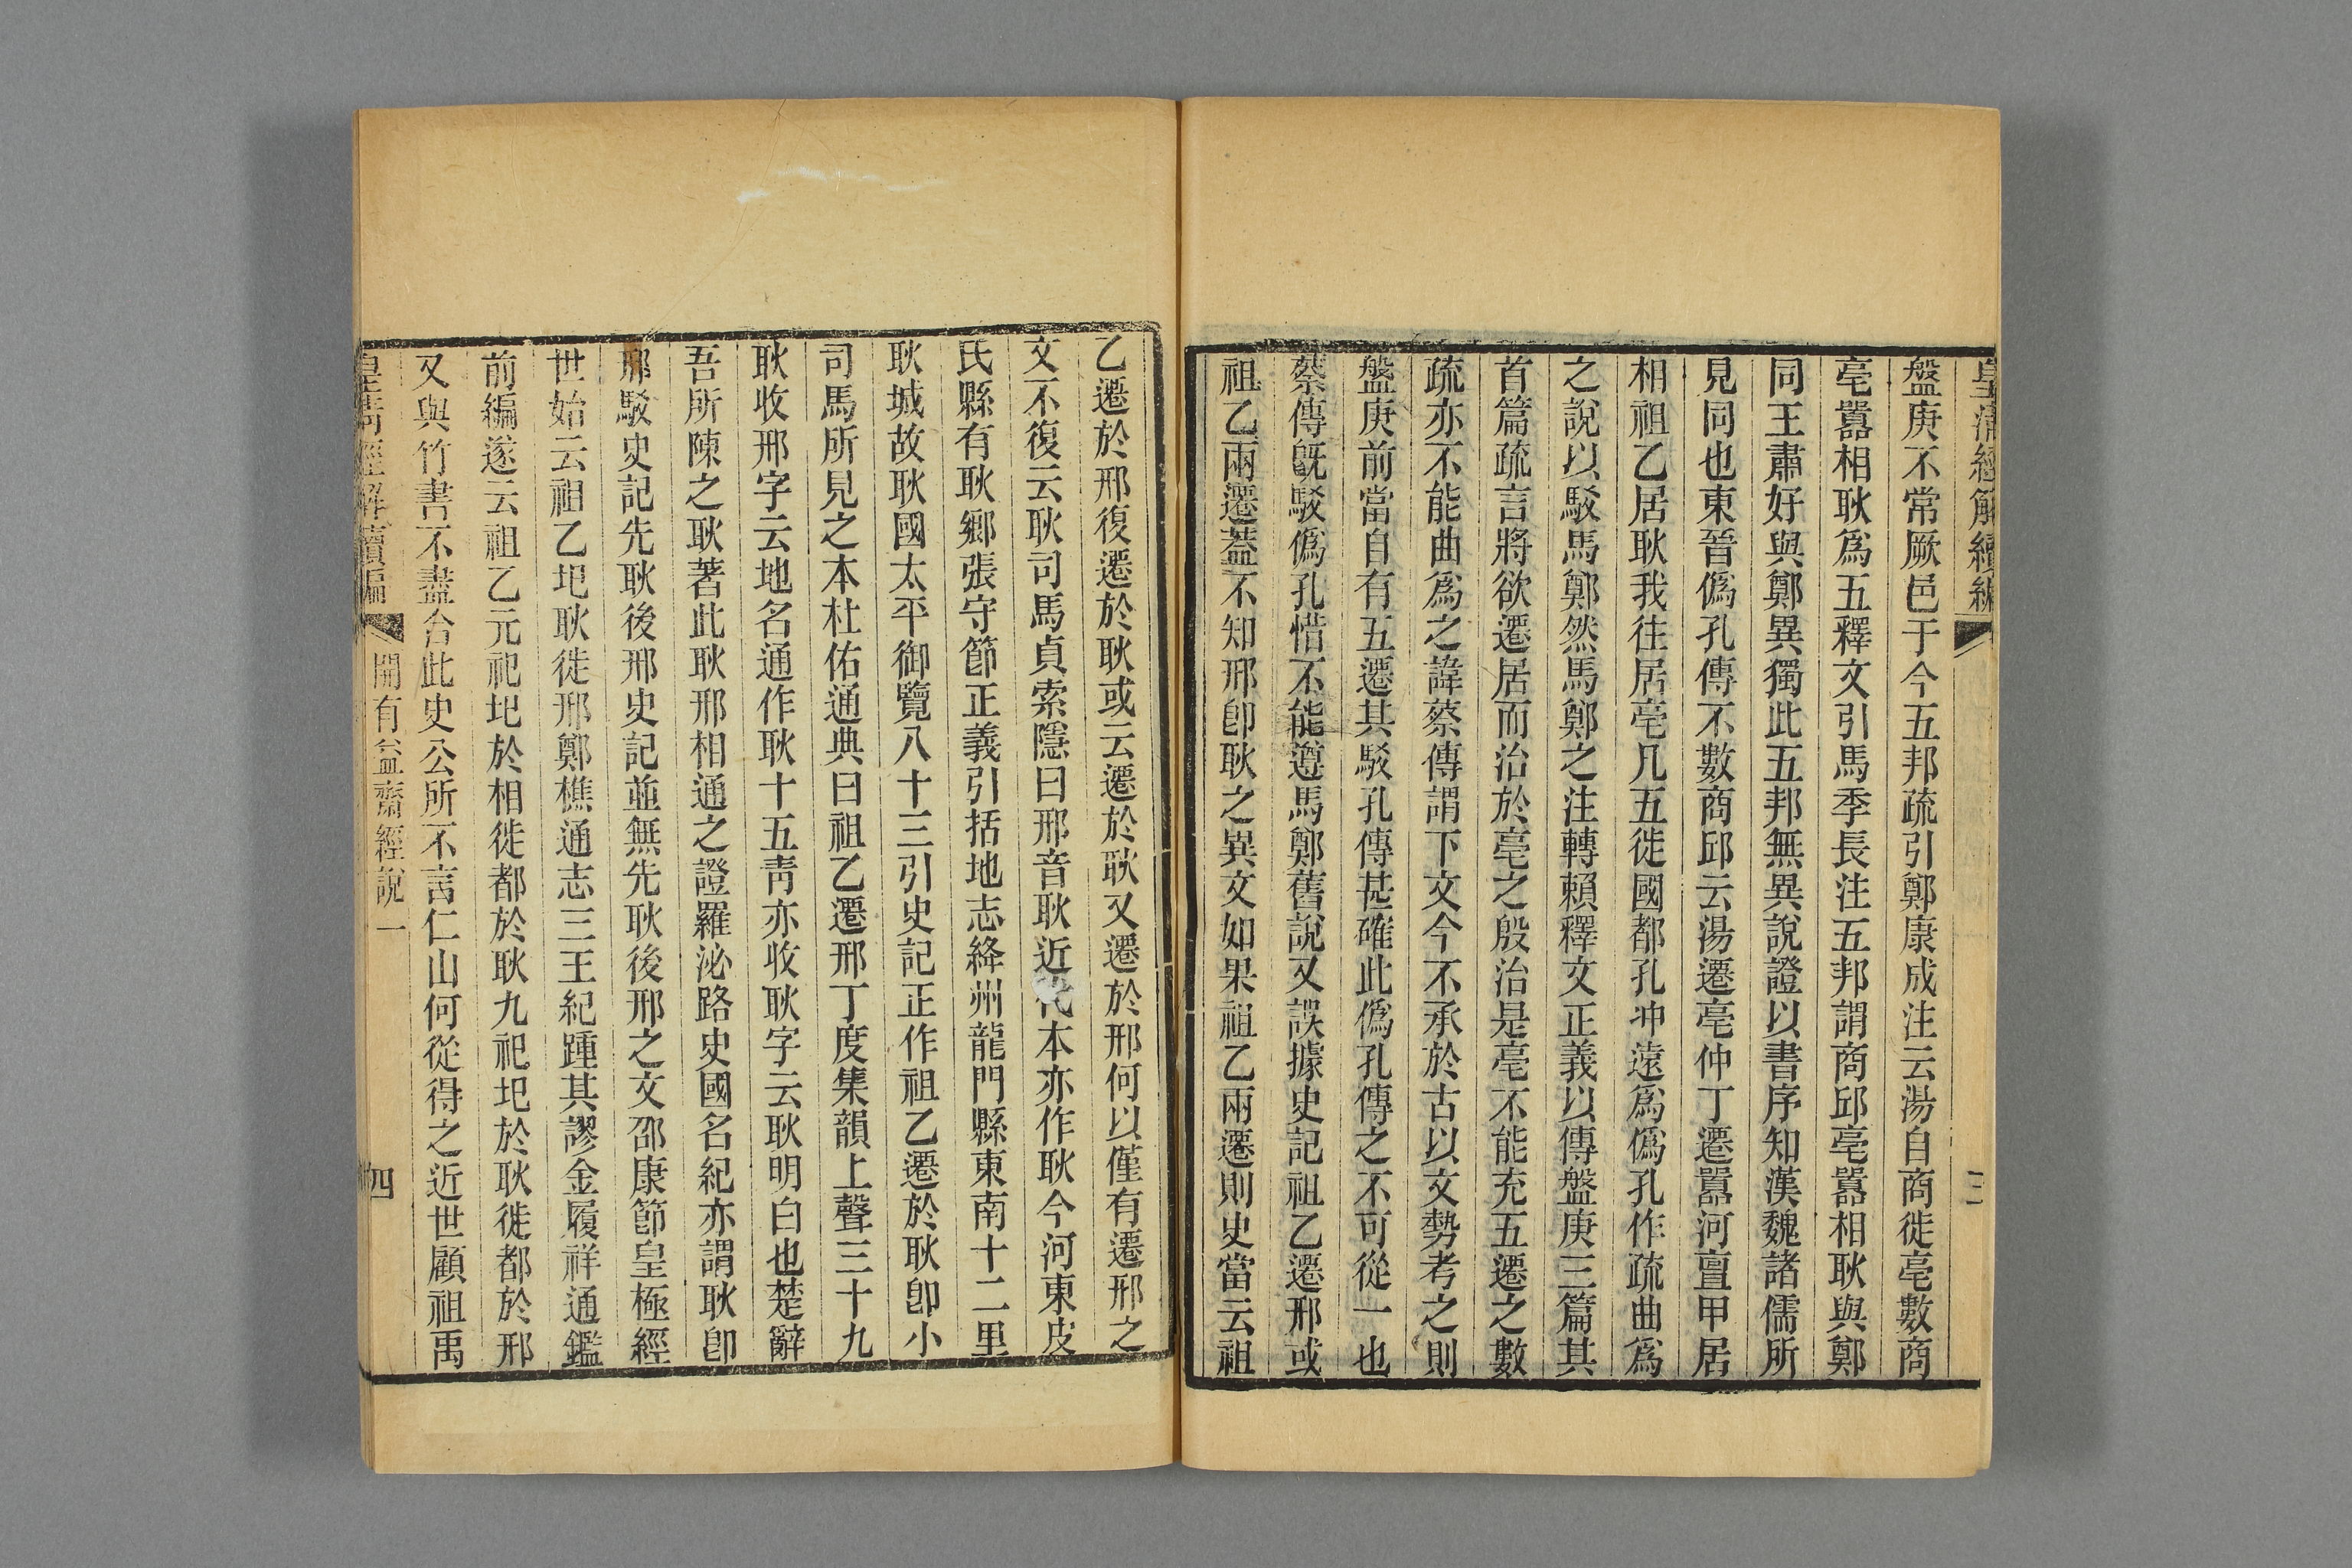 皇清經解續編
三
盤庚不常厥邑于今五邦疏引鄭康成注云湯自商徙亳數商
亳嚻相耿爲五釋文引馬季長注五邦謂商邱亳嚻相耿與鄭
同王肅好與鄭異獨此五邦無異說證以書序知漢魏諸儒所
見同也東晉僞孔傳不數商邱云湯遷亳仲丁遷嚻河亶甲居
相祖乙居耿我往居亳凡五徙國都孔冲遠爲僞孔作疏曲爲
之說以駁馬鄭然馬鄭之注轉賴釋文正義以傳盤庚三篇其
首篇疏言將欲遷居而治於亳之殷治是亳不能充五遷之數
疏亦不能曲爲之諱蔡傳謂下文今不承於古以文勢考之則
盤庚前當自有五遷其駁孔傳甚確此僞孔傳之不可從一也
蔡傳旣駁僞孔惜不能遵馬鄭舊說又誤據史記祖乙遷邢或
祖乙兩遷蓋不知邢卽耿之異文如果祖乙兩遷則史當云祖
乙遷於邢復遷於耿或云遷於耿又遷於邢何以僅有遷邢之
文不復云耿司馬貞索隱曰邢音耿近代本亦作耿今河東皮
氏縣有耿鄉張守節正義引括地志絳州龍門縣東南十二里
耿城故耿國太平御覽八十三引史記正作祖乙遷於耿卽小
司馬所見之本杜佑通典曰祖乙遷邢丁度集韻上聲三十九
耿收邢字云地名通作耿十五靑亦收耿字云耿明白也楚辭
吾所陳之耿著此耿邢相通之證羅泌路史國名紀亦謂耿卽
邢駁史記先耿後邢史記並無先耿後邢之文邵康節皇極經
世始云祖乙圯耿徙邢鄭樵通志三王紀踵其謬金履祥通鑑
前編遂云祖乙元祀圯於相徙都於耿九祀圯於耿徙都於邢
又與竹書不盡合此史公所不言仁山何從得之近世顧祖禹
皇清經解續編
開有益齋經說一
四